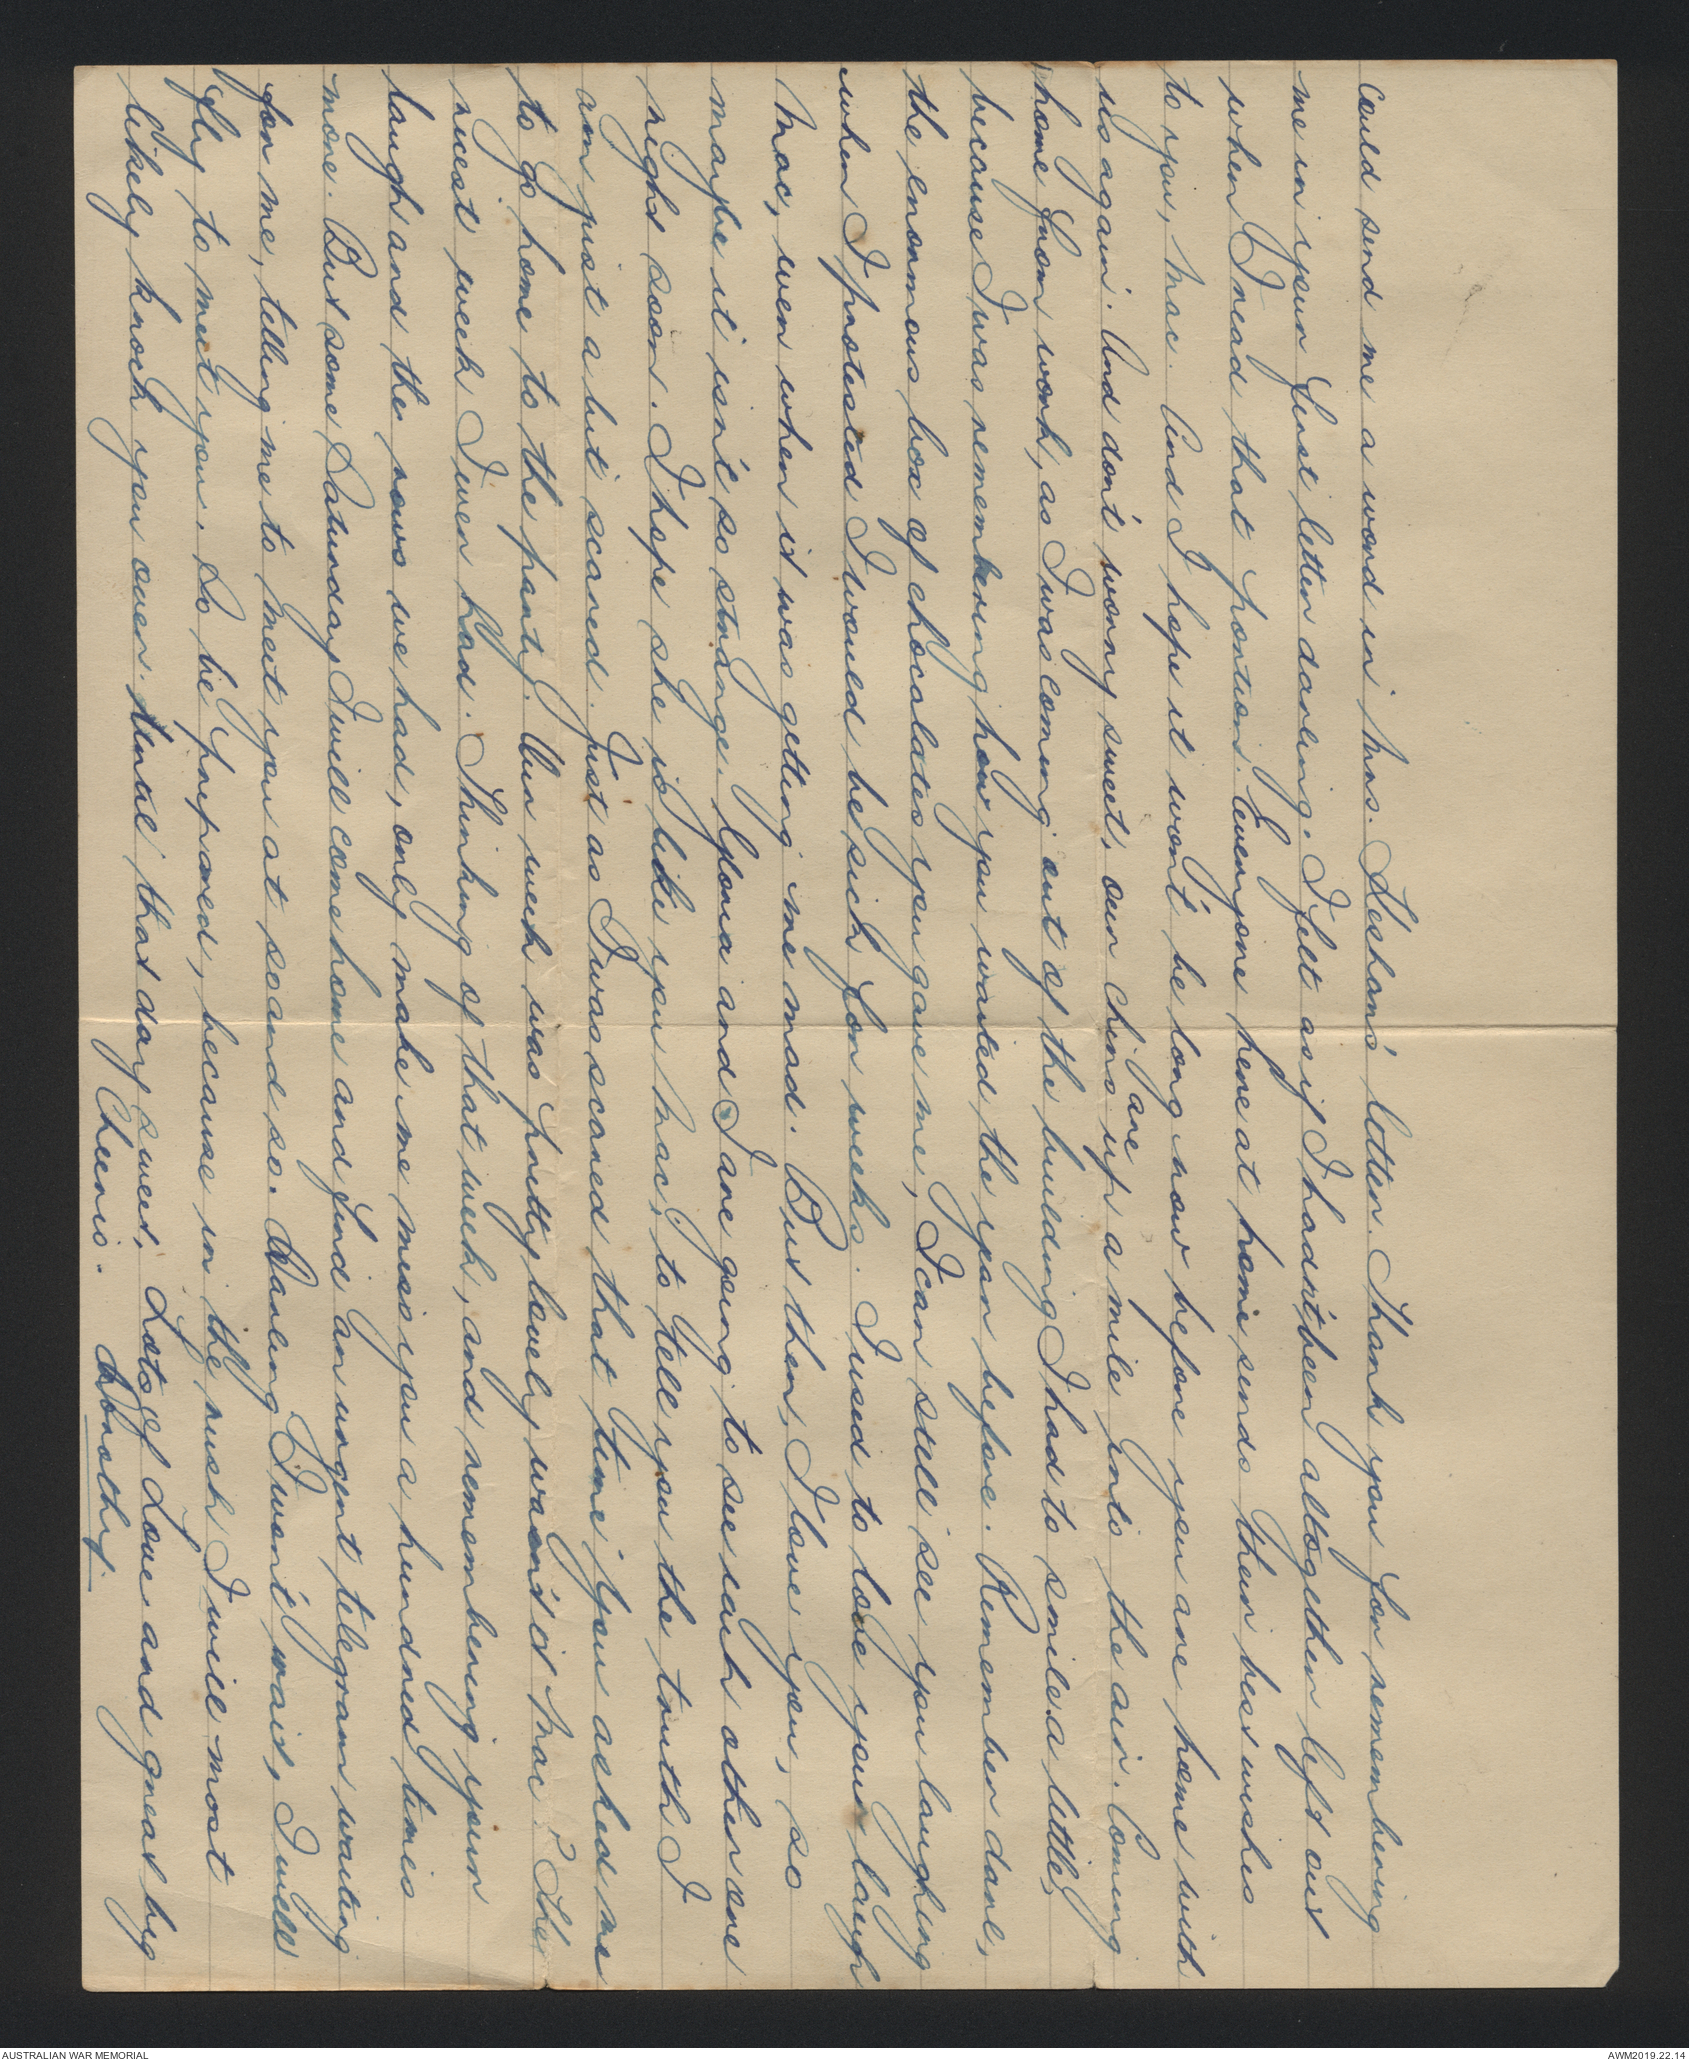 could send me a word in Mrs. Leskam's letter. Thank you for remembering
me in your first letter darling. I felt as if I hadn't been alltogether left out
when I read that portion. Everyone here at home sends their best wishes
to you, Mac. And I hope it won't be long now before you are home with
us again. And don't worry sweet, our chins are up a mile into the air. Coming
home from work, as I was coming out of the building I had to smile a little,
because I was remembering how you waited the year before. Remember darl,
the enormous box of chocolates you gave me, I can still see you laughing
when I protested I would be sick for weeks. I used to love your laugh
Mac, even when it was getting me mad. But then, I love you, so
maybe it isn't so strange. Gloria and I are going to see each other one
night soon. I hope she is like you Mac, to tell you the truth I
am just a bit scared. Just as I was scared that time you asked me
to go home to the party. Our week was pretty lovely wasn't it Mac? The
nicest week I ever had. Thinking of that week, and remembering your
laugh and the rows we had, only make me miss you a hundred times
more. But some Saturday I will come home and find an urgent telegram waiting
for me, telling me to meet you at so and so. Darling I won't wait, I will
fly to meet you. So be prepared, because in the rush I will most
likely knock you over. Until that day sweet, Lots of Love and great big
Cheerio. Dorothy.
AUSTRALIAN WAR MEMORIAL
AWM2019.22.14